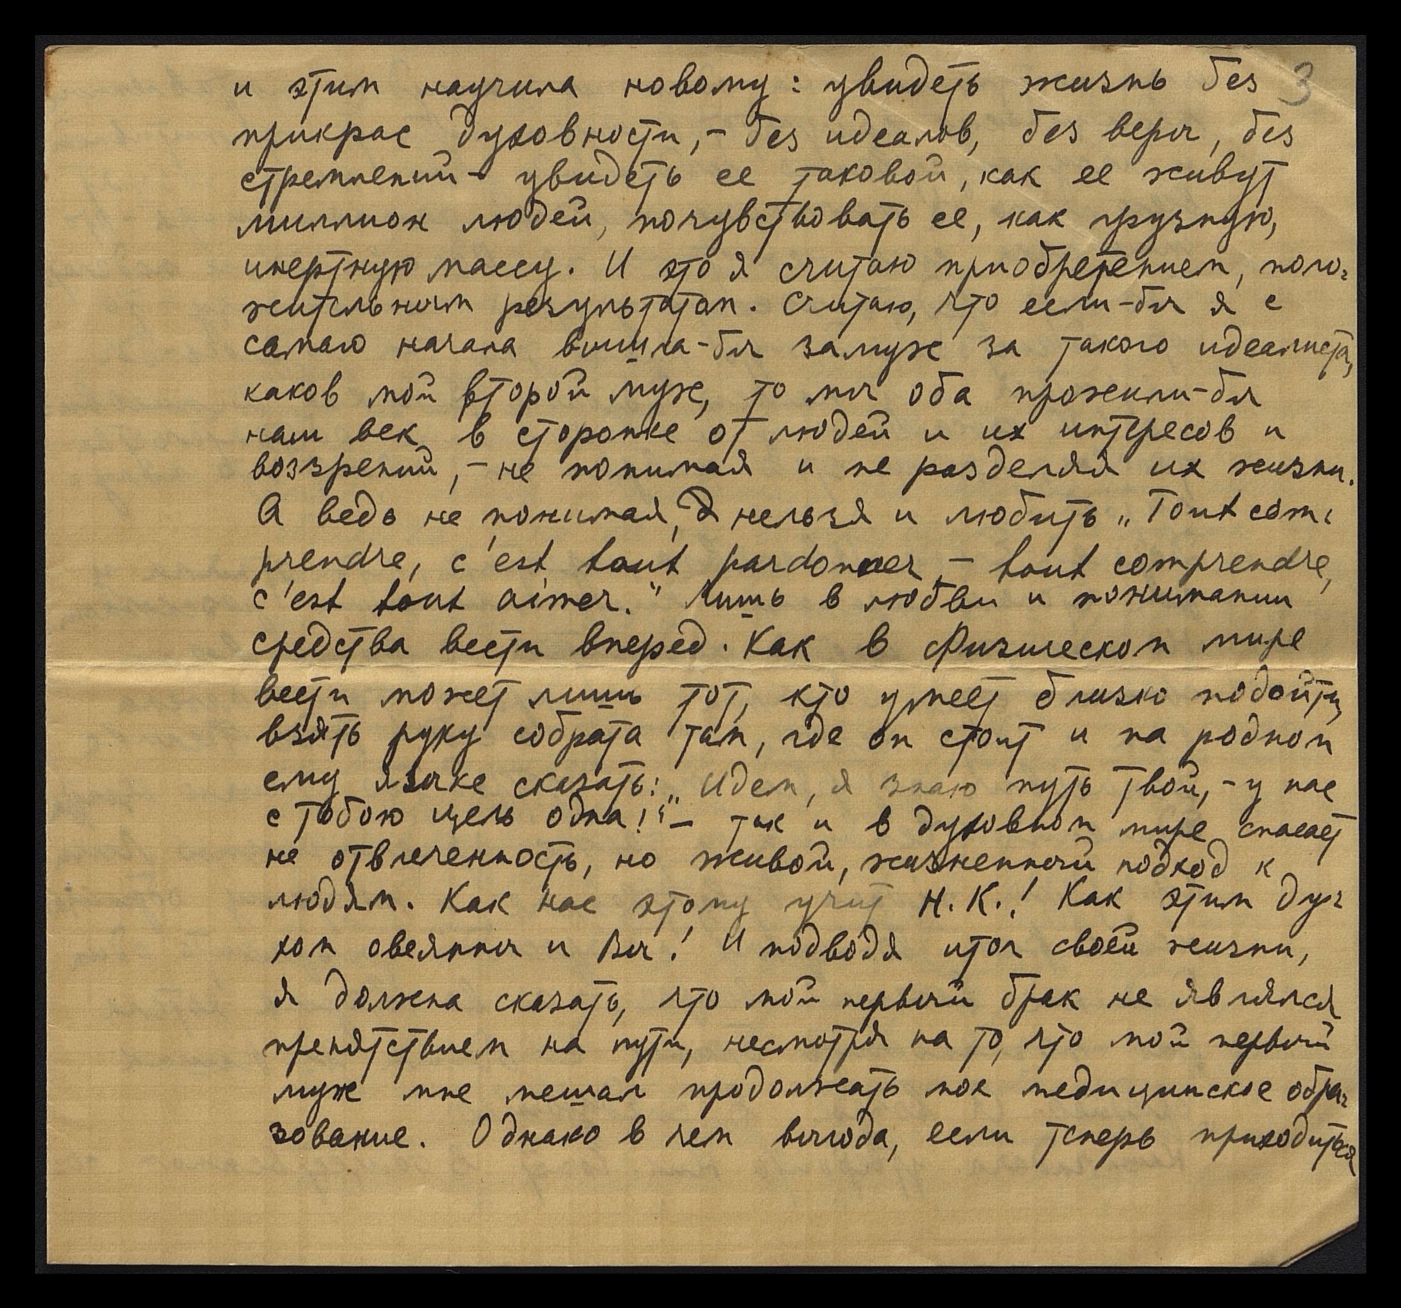 и этим научила новому: увидеть жизнь без 3
прикрас духовности, – без идеалов, без веры, без
стремлений – увидеть ее таковой, как ее живут
миллион людей, почувствовать ее, как грузную,
инертную массу. И это я считаю приобретением, поло-
жительным результатом. Считаю, что если-бы я с
самаго начала вышла-бы замуж за такого идеалиста,
каков мой второй муж, то мы оба прожили-бы
наш век в сторонке от людей и их интересов и
воззрений, – не понимая и не разделяя их жизни.
А ведь не понимая, нельзя и любить „Tout com-
prendre, c'est tout pardonner, – tout comprendre,
c'est tout aimer." Лишь в любви и понимании
средства вести вперед. Как в физическом мире
вести может лишь тот, кто умеет близко подойти,
взять руку собрата там, где он стоит и на родном
ему языке сказать: „Идем, я знаю путь твой, – у нас
с тобою цель одна!" – так и в духовном мире спасает
не отвлеченность, но живой, жизненный подход к
людям. Как нас этому учит Н.К.! Как этим ду-
хом овеянны и Вы! И подводя итог своей жизни,
я должна сказать, что мой первый брак не являлся
препятствием на пути, несмотря на то, что мой первый
муж мне мешал продолжать мое медицинское обра-
зование. Однако в чем выгода, если теперь приходиться